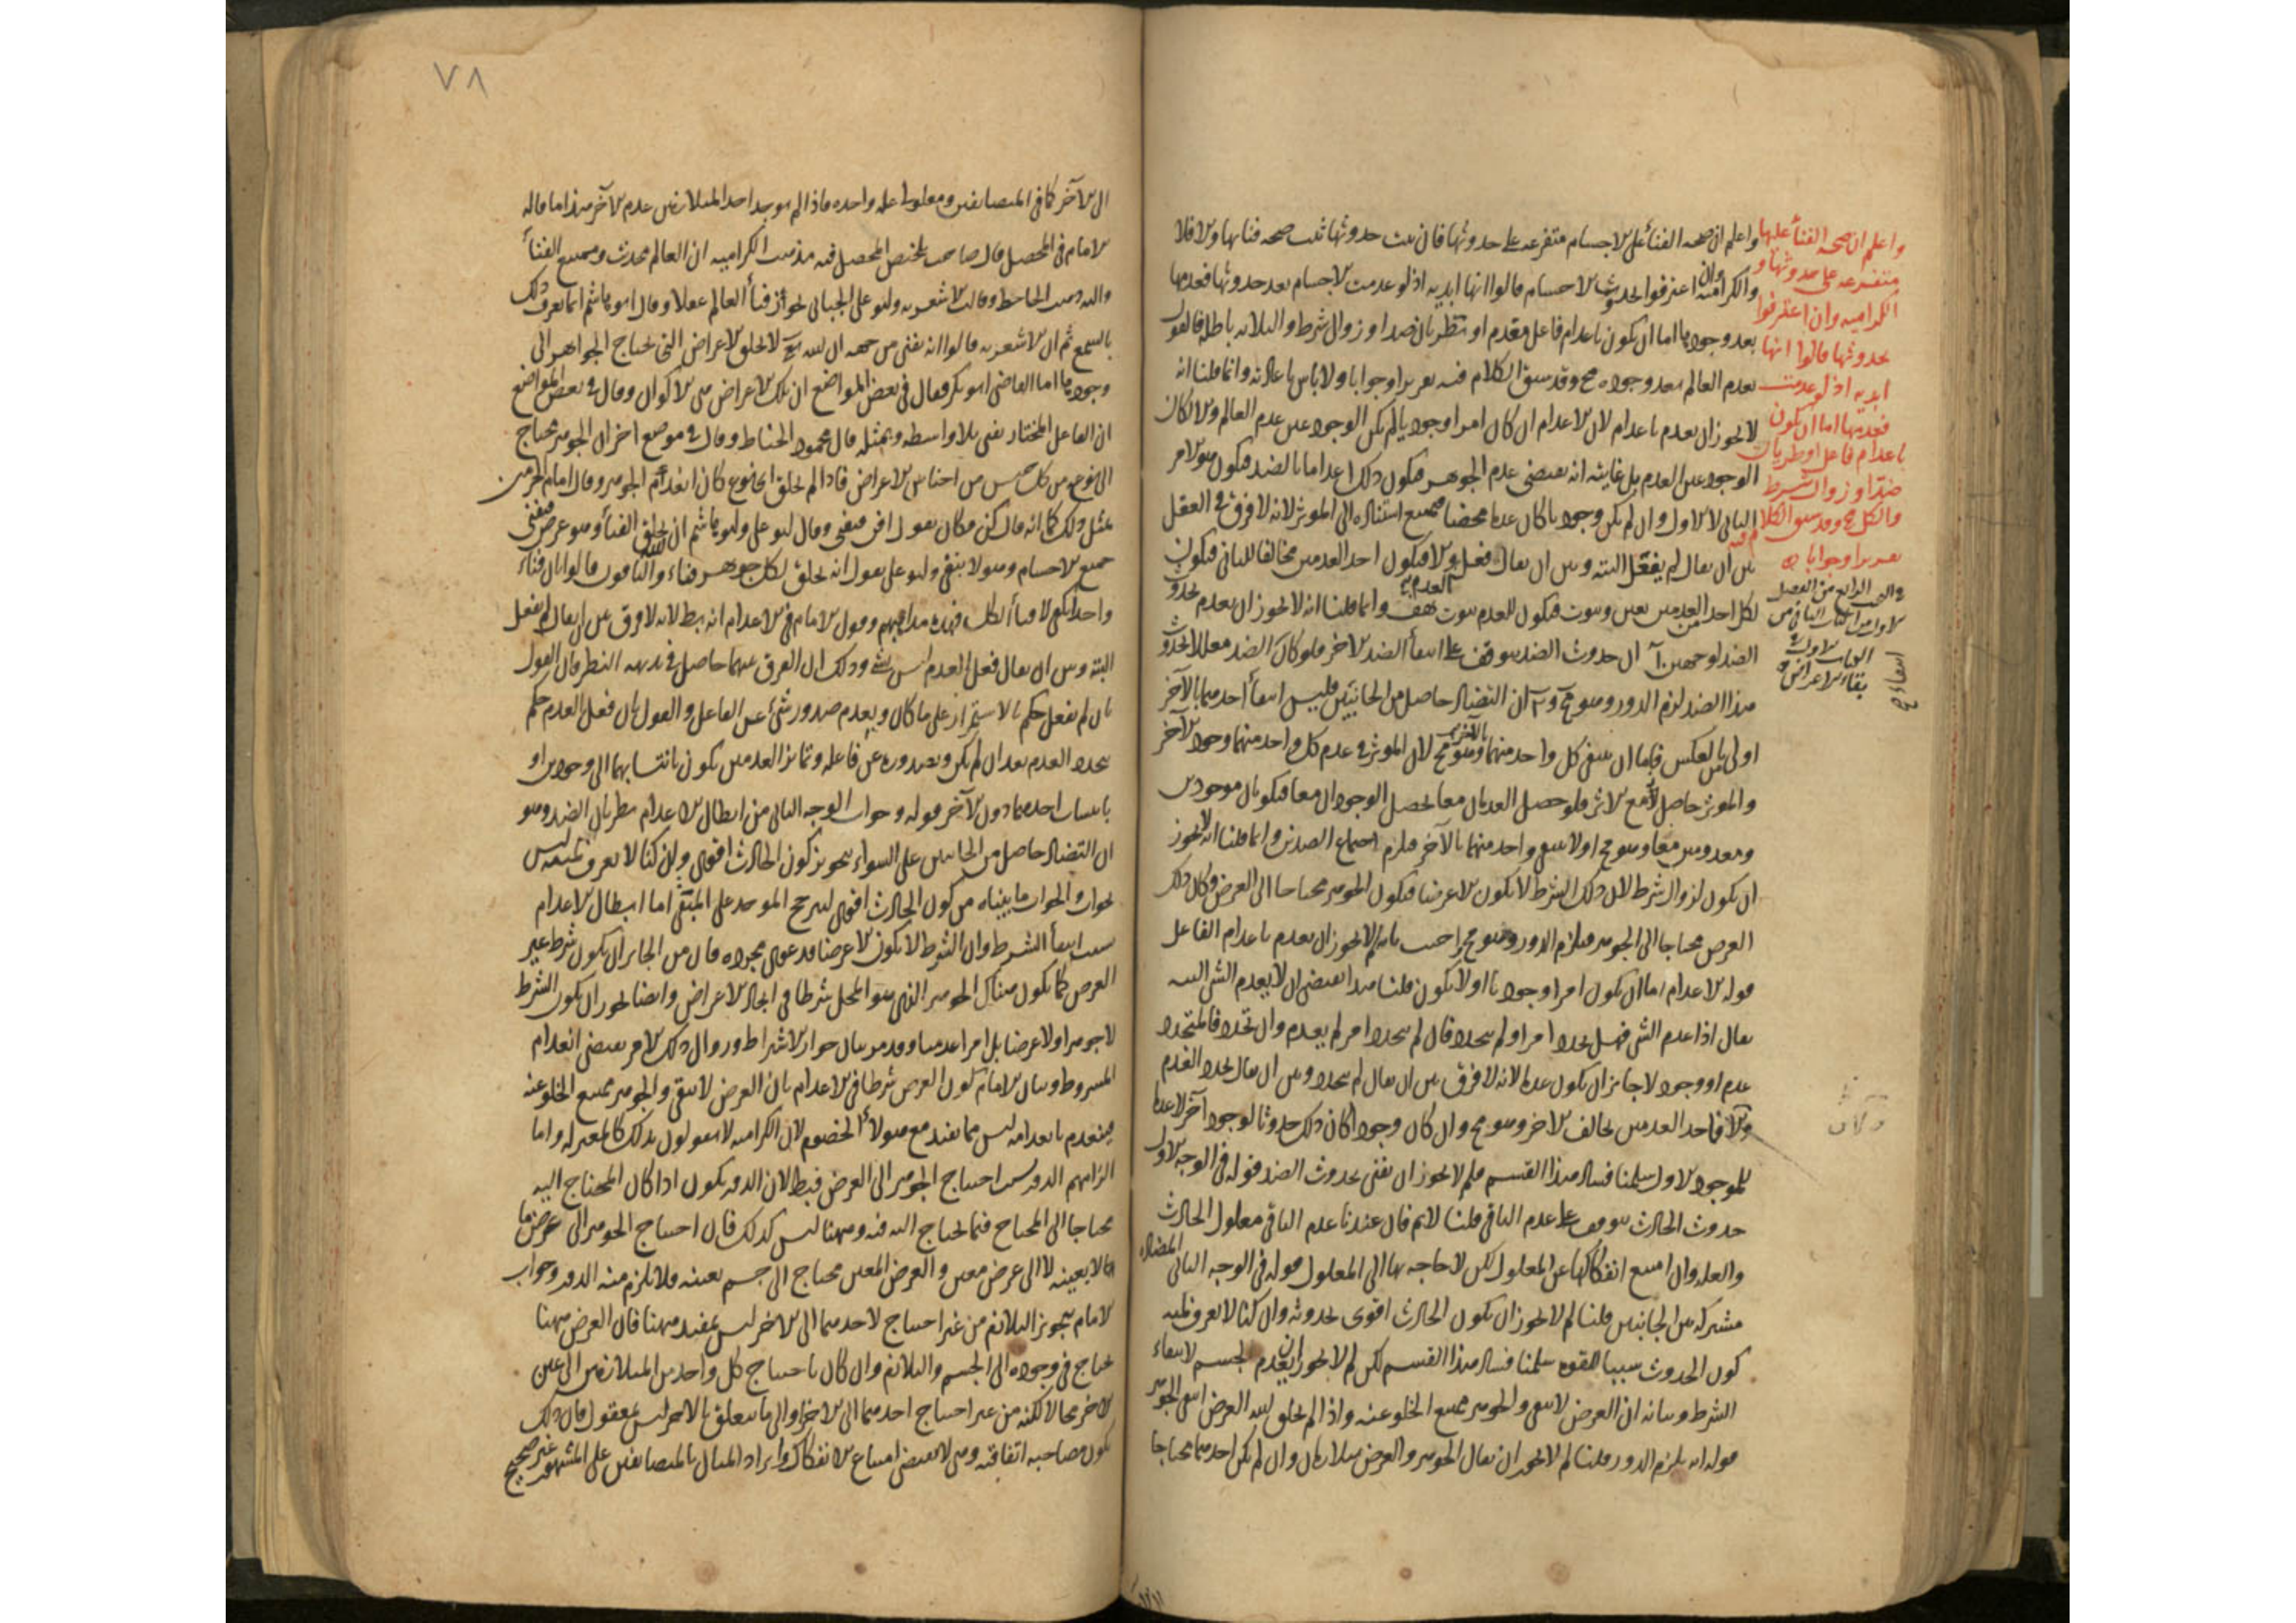 واعلم ان صحة الفناء على الاجسام متفرعة على حدوثها فان ثبت حدوثها ثبت صحة فنائها والا فلا
والكرامية وان اعترفوا بحدوث الاجسام قالوا انها ابدية اذ لو عدمت الاجسام بعد حدوثها فعدمها
بعد وجودها اما ان يكون باعدام فاعل معدم او بطريان ضد او زوال شرط والثلاثة باطلة فالقول
بعدم العالم بعد وجوده مح وقد سبق الكلام فيه تقريرا وجوابا ولا باس باعادته وانما قلنا انه
لا يجوز ان يعدم باعدام لان الاعدام ان كان امرا وجوديا لم يكن الوجود عين عدم العالم والا لكان
الوجود عين العدم بل غايته انه يقتضي عدم الجوهر فيكون ذلك اعداما بالضد فيكون هو الامر
الثاني لا الاول وان لم يكن وجوديا كان عدما محضا فيمتنع استناده الى الموثر لانه لا فرق في العقل
بين ان يقال لم يفعل البتة وبين ان يقال فعل والا فيكون احد العدمين مخالفا للثاني فيكون
لكل احد من العدمين تعين وثبوت فيكون للعدم ثبوت هف وانما قلنا انه لا يجوز ان يعدم بحدوث
الضد لوجهين آ ان حدوث الضد يتوقف على انتفاء الضد الاخر فلو كان الضد معللا بحدوث
هذا الضد لزم الدور وهو مح وب ان التضاد حاصل من الجانبين فليس انتفاء احدهما بالآخر
اولى من العكس فاما ان ينتفي كل واحد منهما بالآخر وهو مح لان الموثر في عدم كل واحد منهما وجود الآخر
والموثر حاصل مع الاثر فلو حصل العدمان معا لحصل الوجودان معا فيكونان موجودين
ومعدومين معا وهو مح اولا ينتفي واحد منهما بالآخر فيلزم اجتماع الضدين وانما قلنا انه لا يجوز
ان يكون لزوال شرط لان ذلك الشرط لا يكون الا عرضا فيكون الجوهر محتاجا الى العرض وكان ذلك
العرض محتاجا الى الجوهر فيلزم الدور وهو مح اجيب بانه لم لا يجوز ان يعدم باعدام الفاعل
قوله الاعدام اما ان يكون امرا وجوديا اولا يكون قلنا هذا يقتضي ان لا يعدم الشي البتة
يقال اذا عدم الشي فهل تجدد امر او لم يتجدد فان لم يتجدد امر لم يعدم وان تجدد فالمتجدد
عدم او وجود لا جائز ان يكون عدما لانه لا فرق بين ان يقال لم يتجدد وبين ان يقال تجدد العدم
والا فاحد العدمين يخالف الاخر وهو مح وان كان وجودا كان ذلك حدوثا لوجود آخر لا عدما
للموجود الاول سلمنا فساد هذا القسم فلم لا يجوز ان يفنى بحدوث الضد قوله في الوجه الاول
حدوث الحادث يتوقف على عدم الباقي قلنا لا نم فان عندنا عدم الباقي معلول الحادث
والعلة وان امتنع انفكاكها عن المعلول لكن لا حاجة بها الى المعلول قوله في الوجه الثاني المضادة
مشتركة بين الجانبين قلنا لم لا يجوز ان يكون الحادث اقوى لحدوثه وان كنا لا نعرف لمية
كون الحدوث سببا للقوة سلمنا فساد هذا القسم لكن لم لا يجوز ان ينعدم الجسم لانتفاء
الشرط وبيانه ان العرض لا يبقى والجوهر يمتنع الخلو عنه واذا لم يخلق الله العرض انتفى الجوهر
قوله انه يلزم الدور قلنا لم لا يجوز ان يقال الجوهر والعرض متلازمان وان لم يكن احدهما محتاجا
واعلم ان صحة الفناء عليها
متفرعة على حدوثها و
الكرامية وان اعترفوا
بحدوثها قالوا انها
ابدية اذ لو عدمت
فعدمها اما ان يكون
باعدام فاعل او طريان
ضد او زوال شرط
والكل مح وقد سبق الكلام فيه
تقريرا وجوابا
في البحث الرابع من الفصل
الاول من الكتاب الثاني من
الباب الاول في
بقاء الاعراض
٧٨
الى الآخر كما في المتضايفين ومعلولي علة واحدة فاذا لم يوجد احد المتلازمين عدم الآخر هذا ما قاله
الامام في المحصل قال صاحب تلخيص المحصل فيه مذهب الكرامية ان العالم محدث وممتنع الفناء
واليه ذهب الجاحظ وقالت الاشعرية وابو علي الجبائي بجواز فناء العالم عقلا وقال ابو هاشم انما يعرف ذلك
بالسمع ثم ان الاشعرية قالوا انه يفنى من جهة ان الله تع لا يخلق الاعراض التي يحتاج الجواهر الى
وجودها اما القاضي ابو بكر فقال في بعض المواضع ان تلك الاعراض هي الاكوان وقال في بعض المواضع
ان الفاعل المختار يفنى بلا واسطة وبمثله قال محمود الخياط وقال في موضع اخر ان الجوهر يحتاج
الى نوع من كل جنس من اجناس الاعراض فاذا لم يخلق اي نوع كان انعدم الجوهر وقال امام الحرمين
بمثل ذلك كما انه قال كن فكان يقول افن فيفنى وقال ابو علي وابو هاشم ان الله يخلق الفناء وهو عرض فيفنى
جميع الاجسام وهو لا يبقى وابو علي يقول انه يخلق لكل جوهر فناء والباقون قالوا بان فناء
واحدا يكفي لافناء الكل فهذه مذاهبهم وقول الامام في الاعدام انه بط لانه لا فرق بين ان يقال لم يفعل
البتة وبين ان يقال فعل العدم ليس بشئ وذلك ان الفرق بينهما حاصل في بديهة النظر فان القول
بان لم يفعل حكم بالاستمرار على ما كان وبعدم صدور شئ عن الفاعل والقول بان فعل العدم حكم
بتجدد العدم بعد ان لم يكن وبصدوره عن فاعله وتمايز العدمين يكون بانتسابهما الى وجودين او
بانتساب احدهما دون الآخر قوله وجواب الوجه الثاني من ابطال الاعدام بطريان الضد وهو
ان التضاد حاصل من الجانبين على السواء بتجويز كون الحادث اقوى وان كنا لا نعرف لميته ليس
بجواب والجواب ما بيناه من كون الحادث اقوى لترجح الموجد على المبقي اما ابطال الاعدام
بسبب انتفاء الشرط وان الشرط لا يكون الا عرضا فدعوى مجردة فان من الجائز ان يكون شرط غير
العرض كما يكون هناك الجوهر الذي هو المحل شرطا في ايجاد الاعراض وايضا يجوز ان يكون الشرط
لا جوهرا ولا عرضا بل امرا عدميا وقد مر بيان جواز الاشتراط وزوال ذلك الامر يقتضي انعدام
المشروط وبيان الامام كون العرض شرطا في الاعدام بان العرض لا يبقى والجوهر يمتنع الخلو عنه
فينعدم بانعدامه ليس مما يفيد مع هولاء الخصوم لان الكرامية لا يقولون بذلك كالمعتزلة واما
الزامهم الدور بسبب احتياج الجوهر الى العرض فبط لان الدور يكون اذا كان المحتاج اليه
محتاجا الى المحتاج فيما يحتاج اليه فيه وههنا ليس كذلك فان احتياج الجوهر الى عرض ما
لا بعينه لا الى عرض معين والعرض المعين محتاج الى جسم بعينه فلا يلزم منه الدور وجواب
الامام بتجويز التلازم من غير احتياج لاحدهما الى الاخر ليس بمفيد ههنا فان العرض ههنا
يحتاج في وجوده الى الجسم والتلازم وان كان باحتياج كل واحد من المتلازمين الى عين
الاخر محالا لكنه من غير احتياج احدهما الى الاخر او الى ما يتعلق بالاخر ليس بمعقول فان ذلك
يكون مصاحبة اتفاقية وهي لا تقتضي امتناع الانفكاك وايراد المثال بالمتضايفين على المشهور غير صحيح